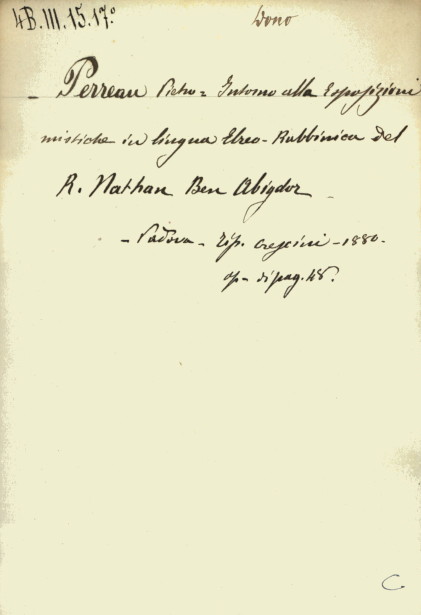 4B.III.15.17.° Dono
- Perreau Pietro = Intorno alla Esposizioni
mistiche in lingua Ebreo-Rabbinica del
R. Nathan Ben Abigdor
- Padova - Tip. Crescini - 1880.
op - di pag. 48.
C